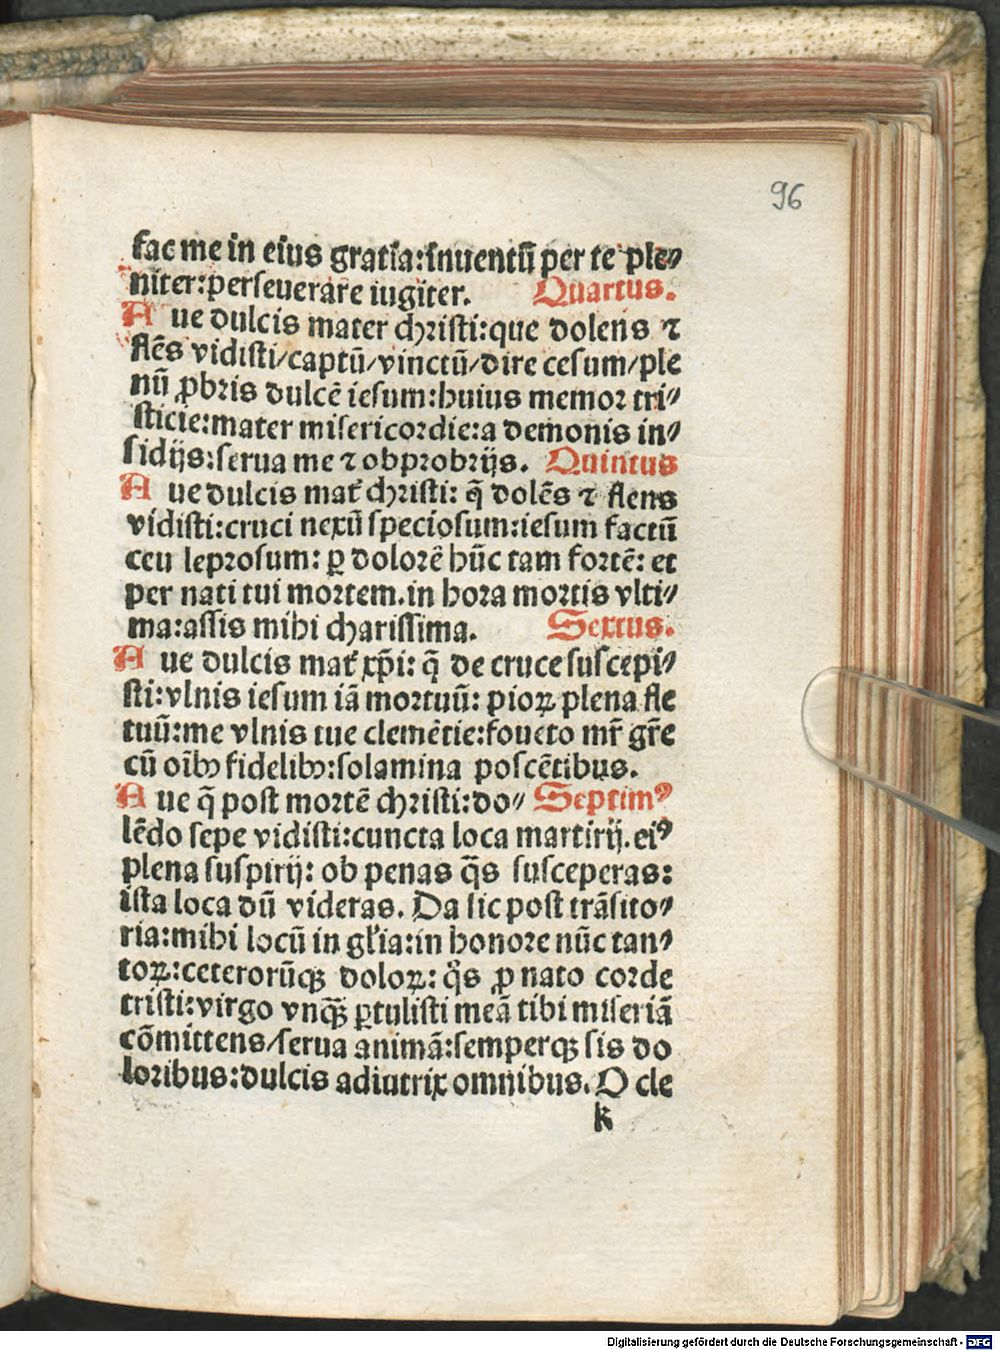 96
fac me in eius gratia:inuentū per te ple⸗
niter:perseuerare iugiter. Quartus.
Aue dulcis mater christi:que dolens ⁊
flēs vidisti/captū/vinctū/dire cesum/ple
nū ꝓbris dulcē iesum:huius memor tri⸗
sticie:mater misericordie:a demonis in⸗
sidijs:serua me ⁊ obprobrijs. Quintus
Aue dulcis mat̃ christi: q̄ dolēs ⁊ flens
vidisti:cruci nexū speciosum:iesum factū
ceu leprosum: ꝑ dolorē hūc tam fortē: et
per nati tui mortem.in hora mortis vlti⸗
ma:assis mihi charissima. Sextus.
Aue dulcis mat̃ xp̄i: q̄ de cruce suscepi⸗
sti:vlnis iesum iā mortuū: pioꝝ plena fle
tuū:me vlnis tue clemētie:foueto mr̄ gr̄e
cū oībꝰ fidelibꝰ:solamina poscētibus.
Aue q̄ post mortē christi:do⸗ Septimꝰ
lēdo sepe vidisti:cuncta loca martirij.eiꝰ
plena suspirij: ob penas q̄s susceperas:
ista loca dū videras. Da sic post trāsito⸗
ria:mihi locū in gl̄ia:in honore nūc tan⸗
toꝝ:ceterorūqꝫ doloꝝ: q̊s ꝓ nato corde
tristi:virgo vnqꝫ̄ ꝑtulisti meā tibi miseriā
cōmittens/serua animā:semperqꝫ sis do
loribus:dulcis adiutrix omnibus. O cle
k
Digitalisierung gefördert durch die Deutsche Forschungsgemeinschaft - DFG